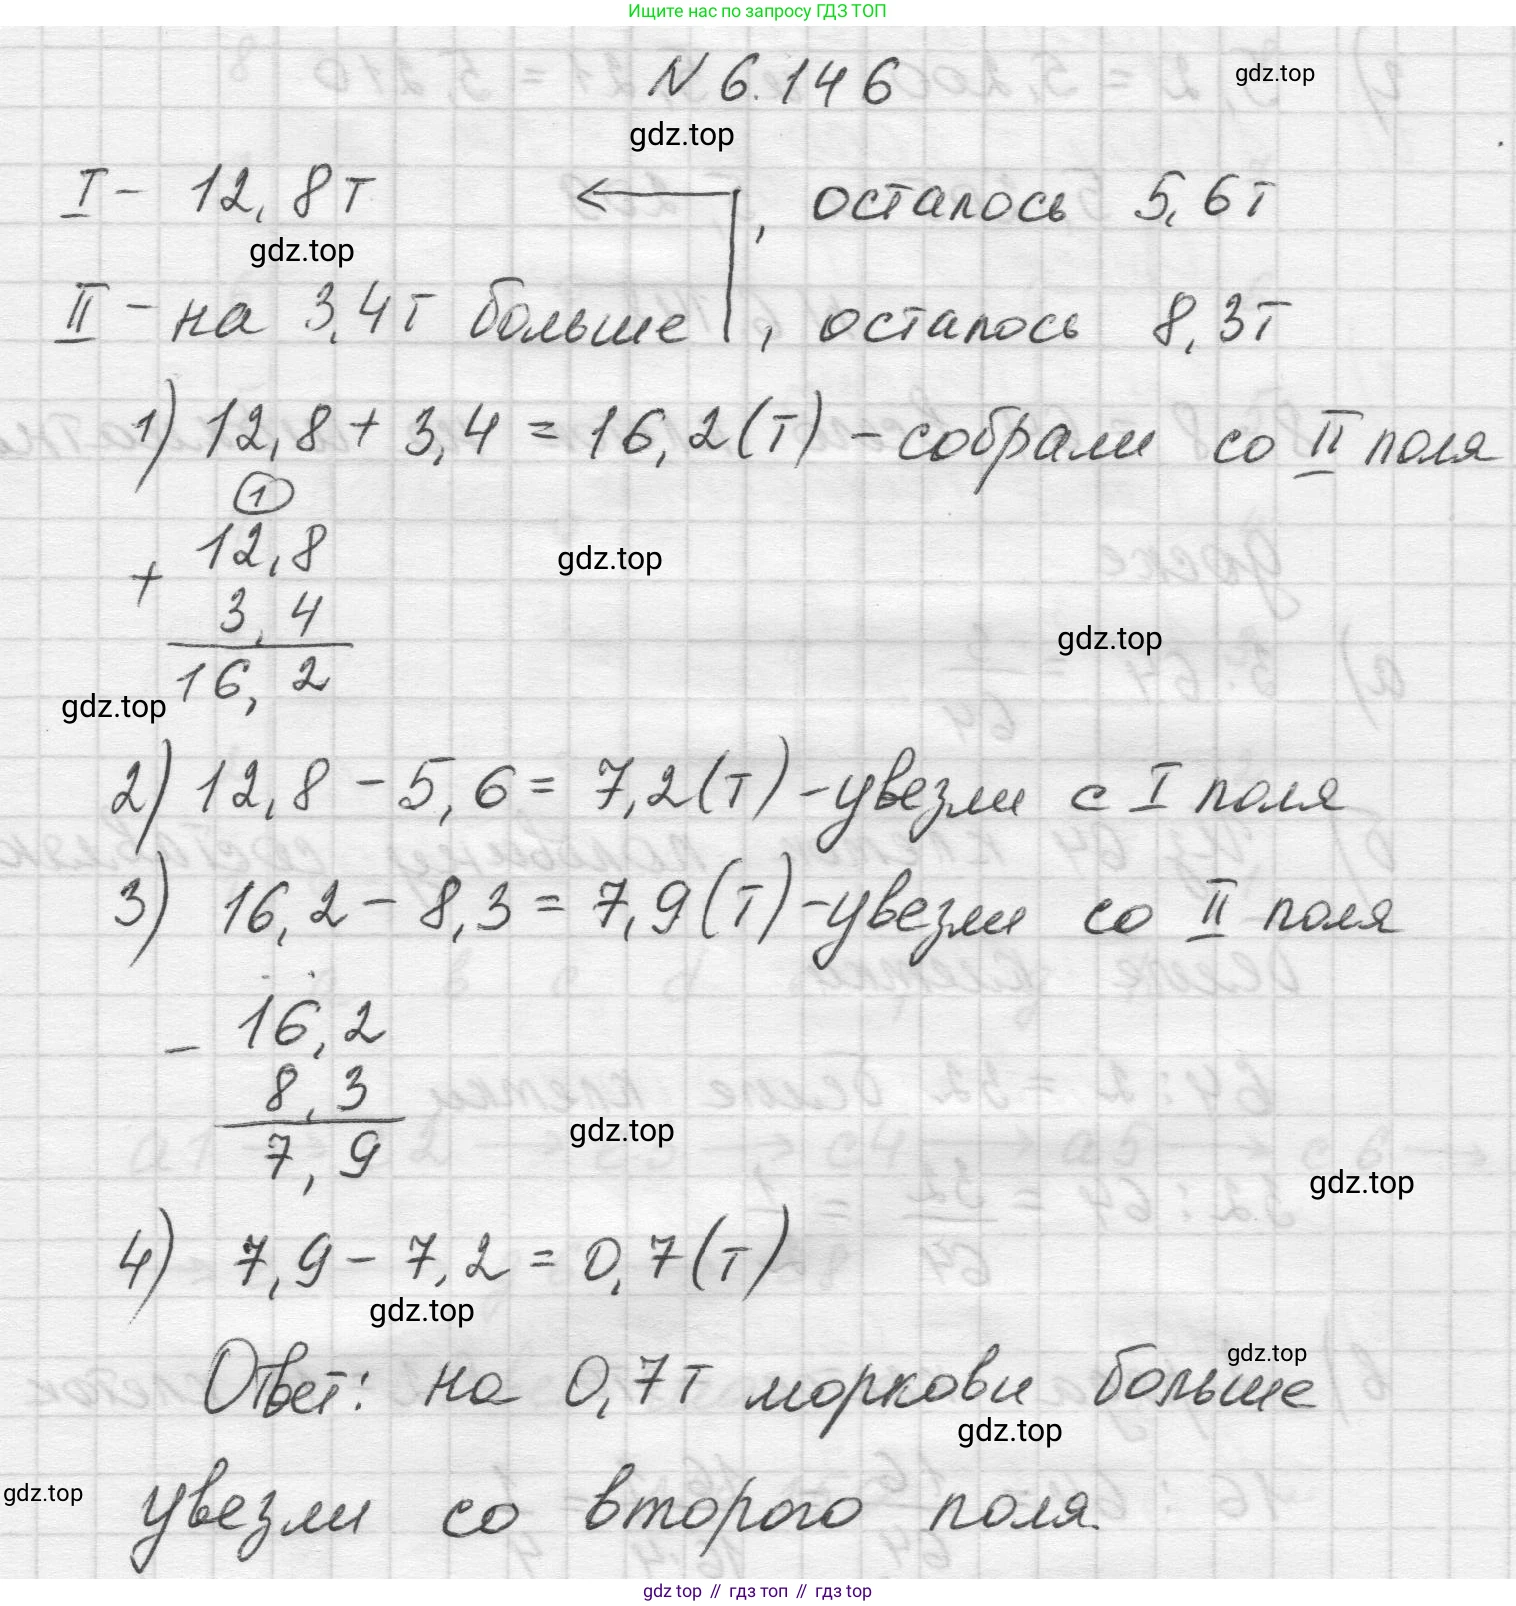 Ищите нас по запросу ГДЗ ТОП
N 6.146
gdz.top
gdz.top
I - 12,8т , осталось 5,6т
gdz.top
II - на 3,4т больше , осталось 8,3т
1) 12,8 + 3,4 = 16,2(т) - собрали со II поля
1
12,8
+
gdz.top
3,4
gdz.top
16,2
gdz.top
2) 12,8 - 5,6 = 7,2(т) - увезли с I поля
3) 16,2 - 8,3 = 7,9(т) - увезли со II поля
16,2
-
8,3
gdz.top
7,9
gdz.top
4) 7,9 - 7,2 = 0,7(т)
gdz.top
Ответ: на 0,7т моркови больше
gdz.top
gdz.top
увезли со второго поля.
gdz.top
gdz.top // гдз топ // гдз top